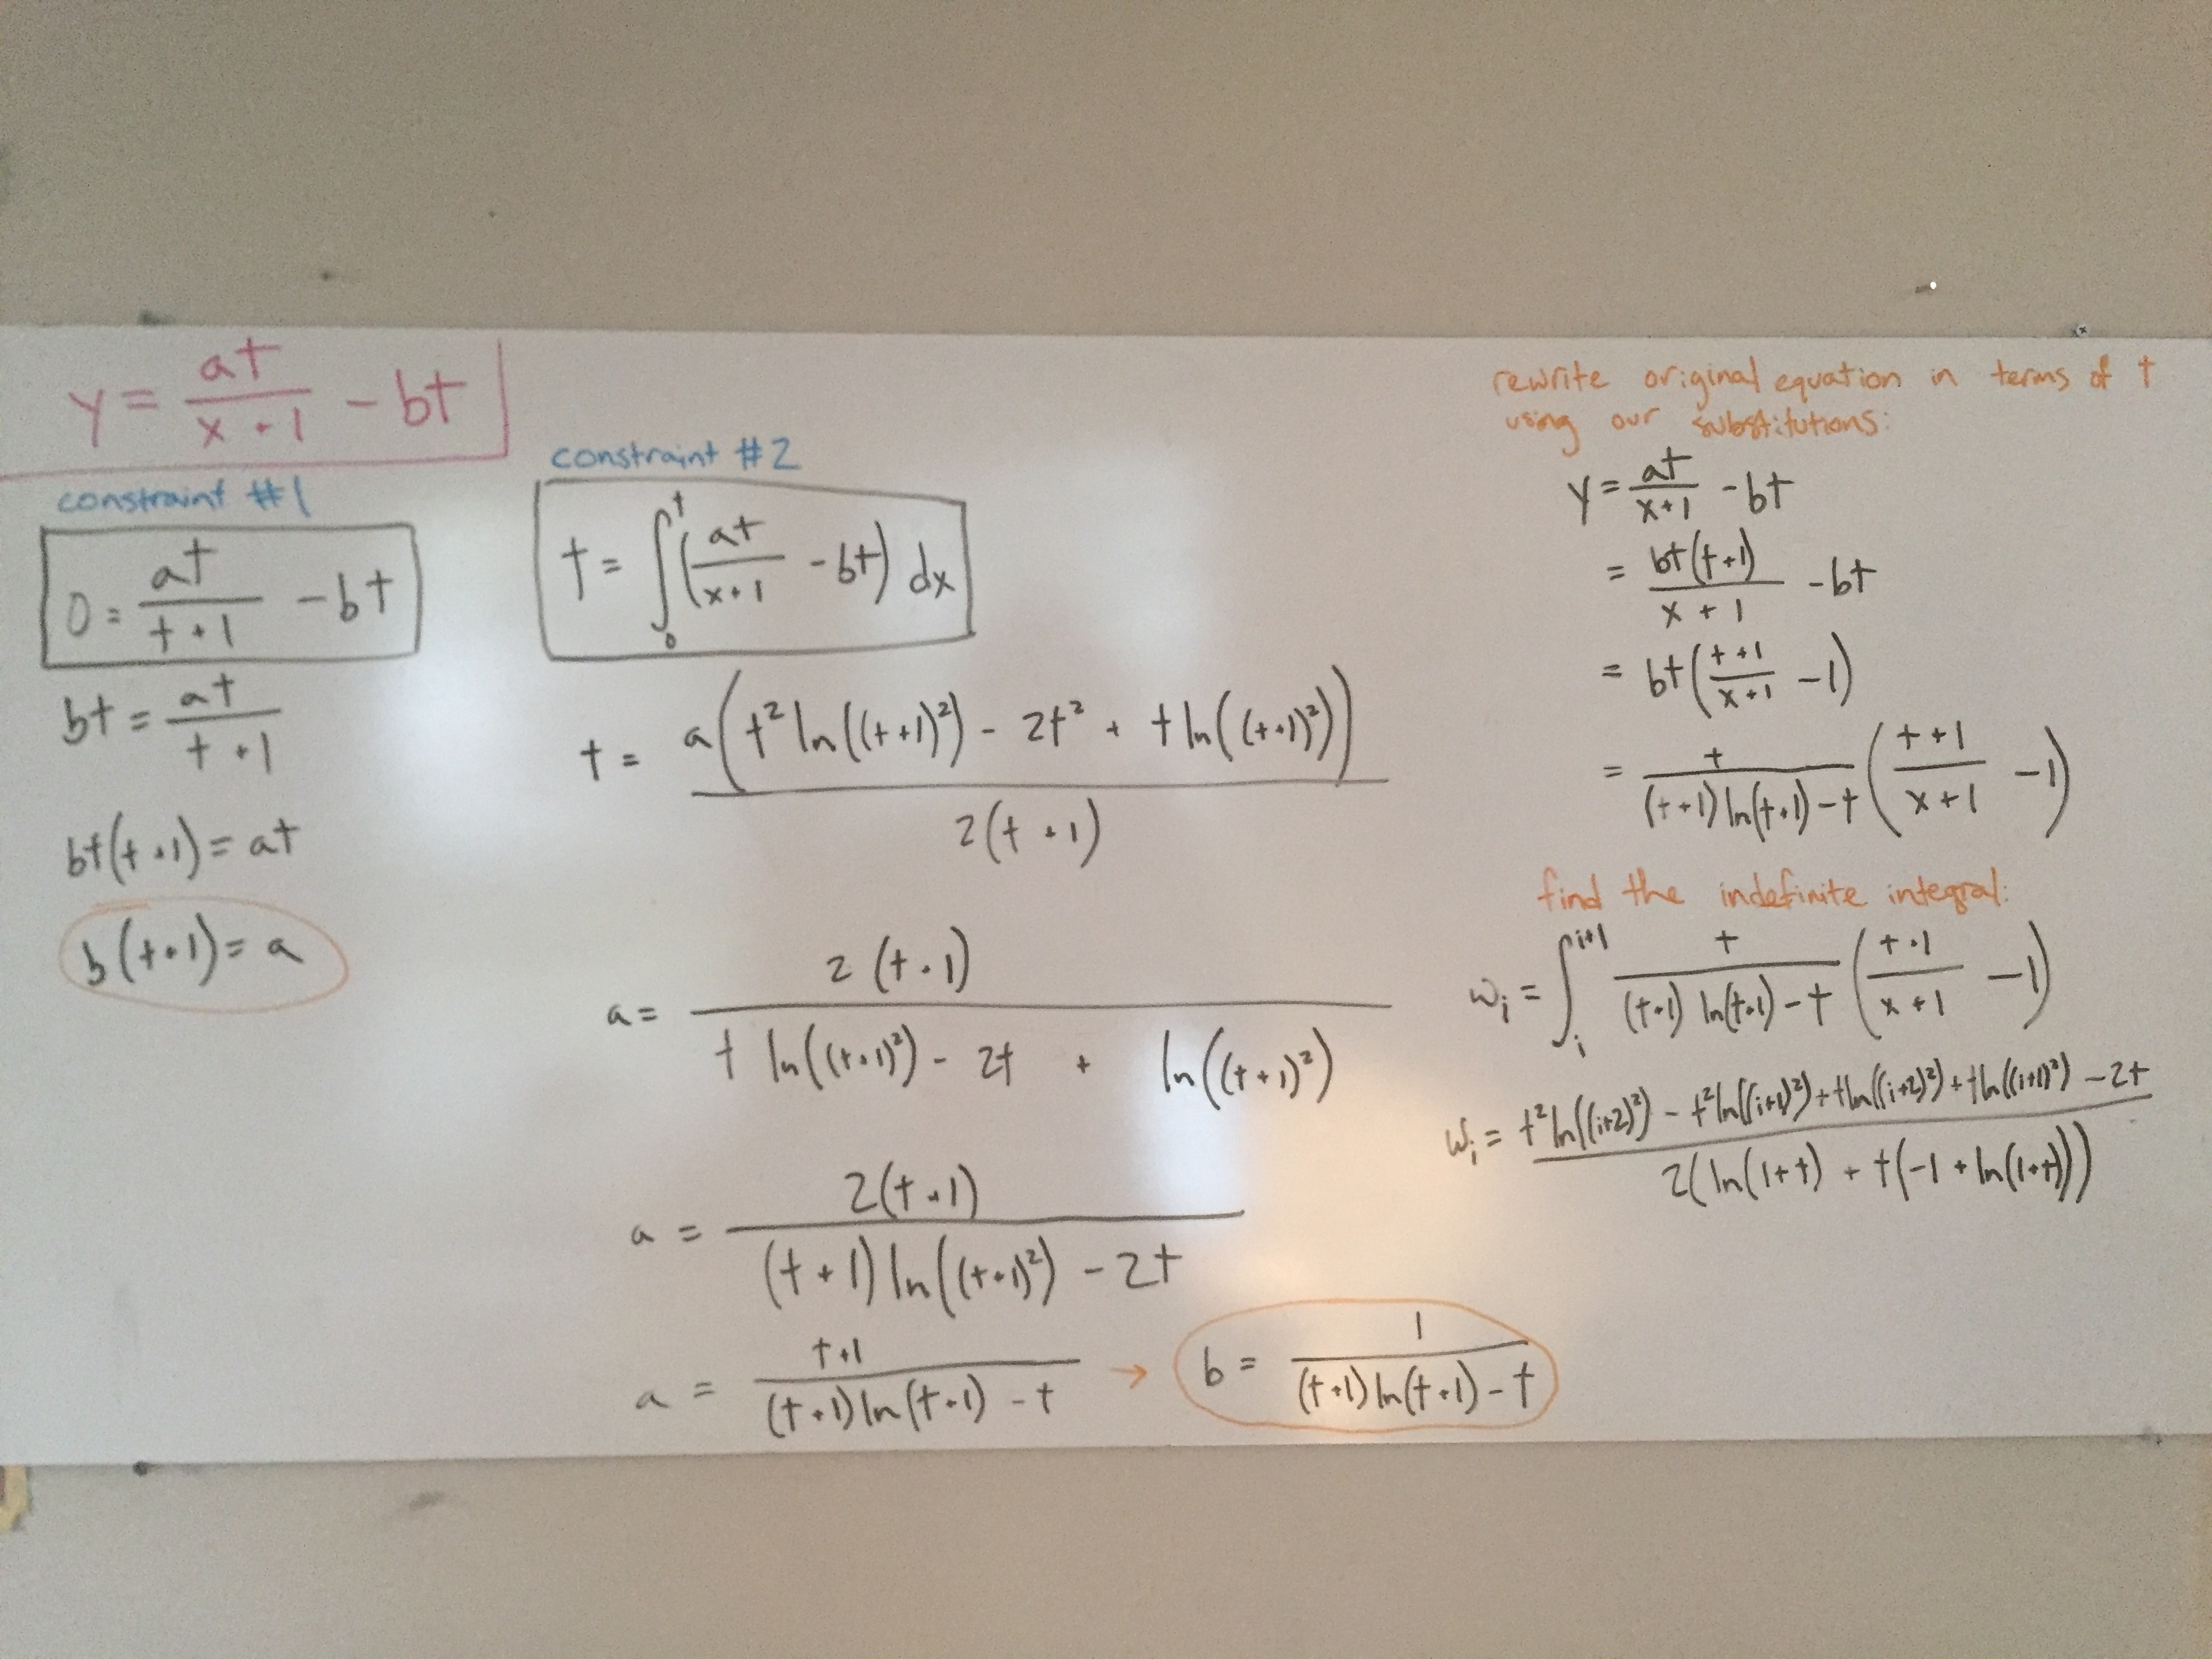 y = at/(x+1) - bt
constraint #1
0 = at/(t+1) - bt
bt = at/(t+1)
bt(t+1) = at
b(t+1) = a
constraint #2
t = ∫₀ᵗ (at/(x+1) - bt) dx
t = a(t² ln((t+1)²) - 2t² + t ln((t+1)²)) / 2(t+1)
a = 2(t+1) / (t ln((t+1)²) - 2t + ln((t+1)²))
a = 2(t+1) / ((t+1) ln((t+1)²) - 2t)
a = (t+1) / ((t+1) ln(t+1) - t) → b = 1 / ((t+1) ln(t+1) - t)
rewrite original equation in terms of t
using our substitutions:
y = at/(x+1) - bt
= bt(t+1)/(x+1) - bt
= bt((t+1)/(x+1) - 1)
= t/((t+1) ln(t+1) - t) ((t+1)/(x+1) - 1)
find the indefinite integral:
wᵢ = ∫ᵢⁱ⁺¹ t/((t+1) ln(t+1) - t) ((t+1)/(x+1) - 1)
wᵢ = (t² ln((i+2)²) - t² ln((i+1)²) + t ln((i+2)²) + t ln((i+1)²) - 2t) / 2(ln(1+t) + t(-1 + ln(1+t)))